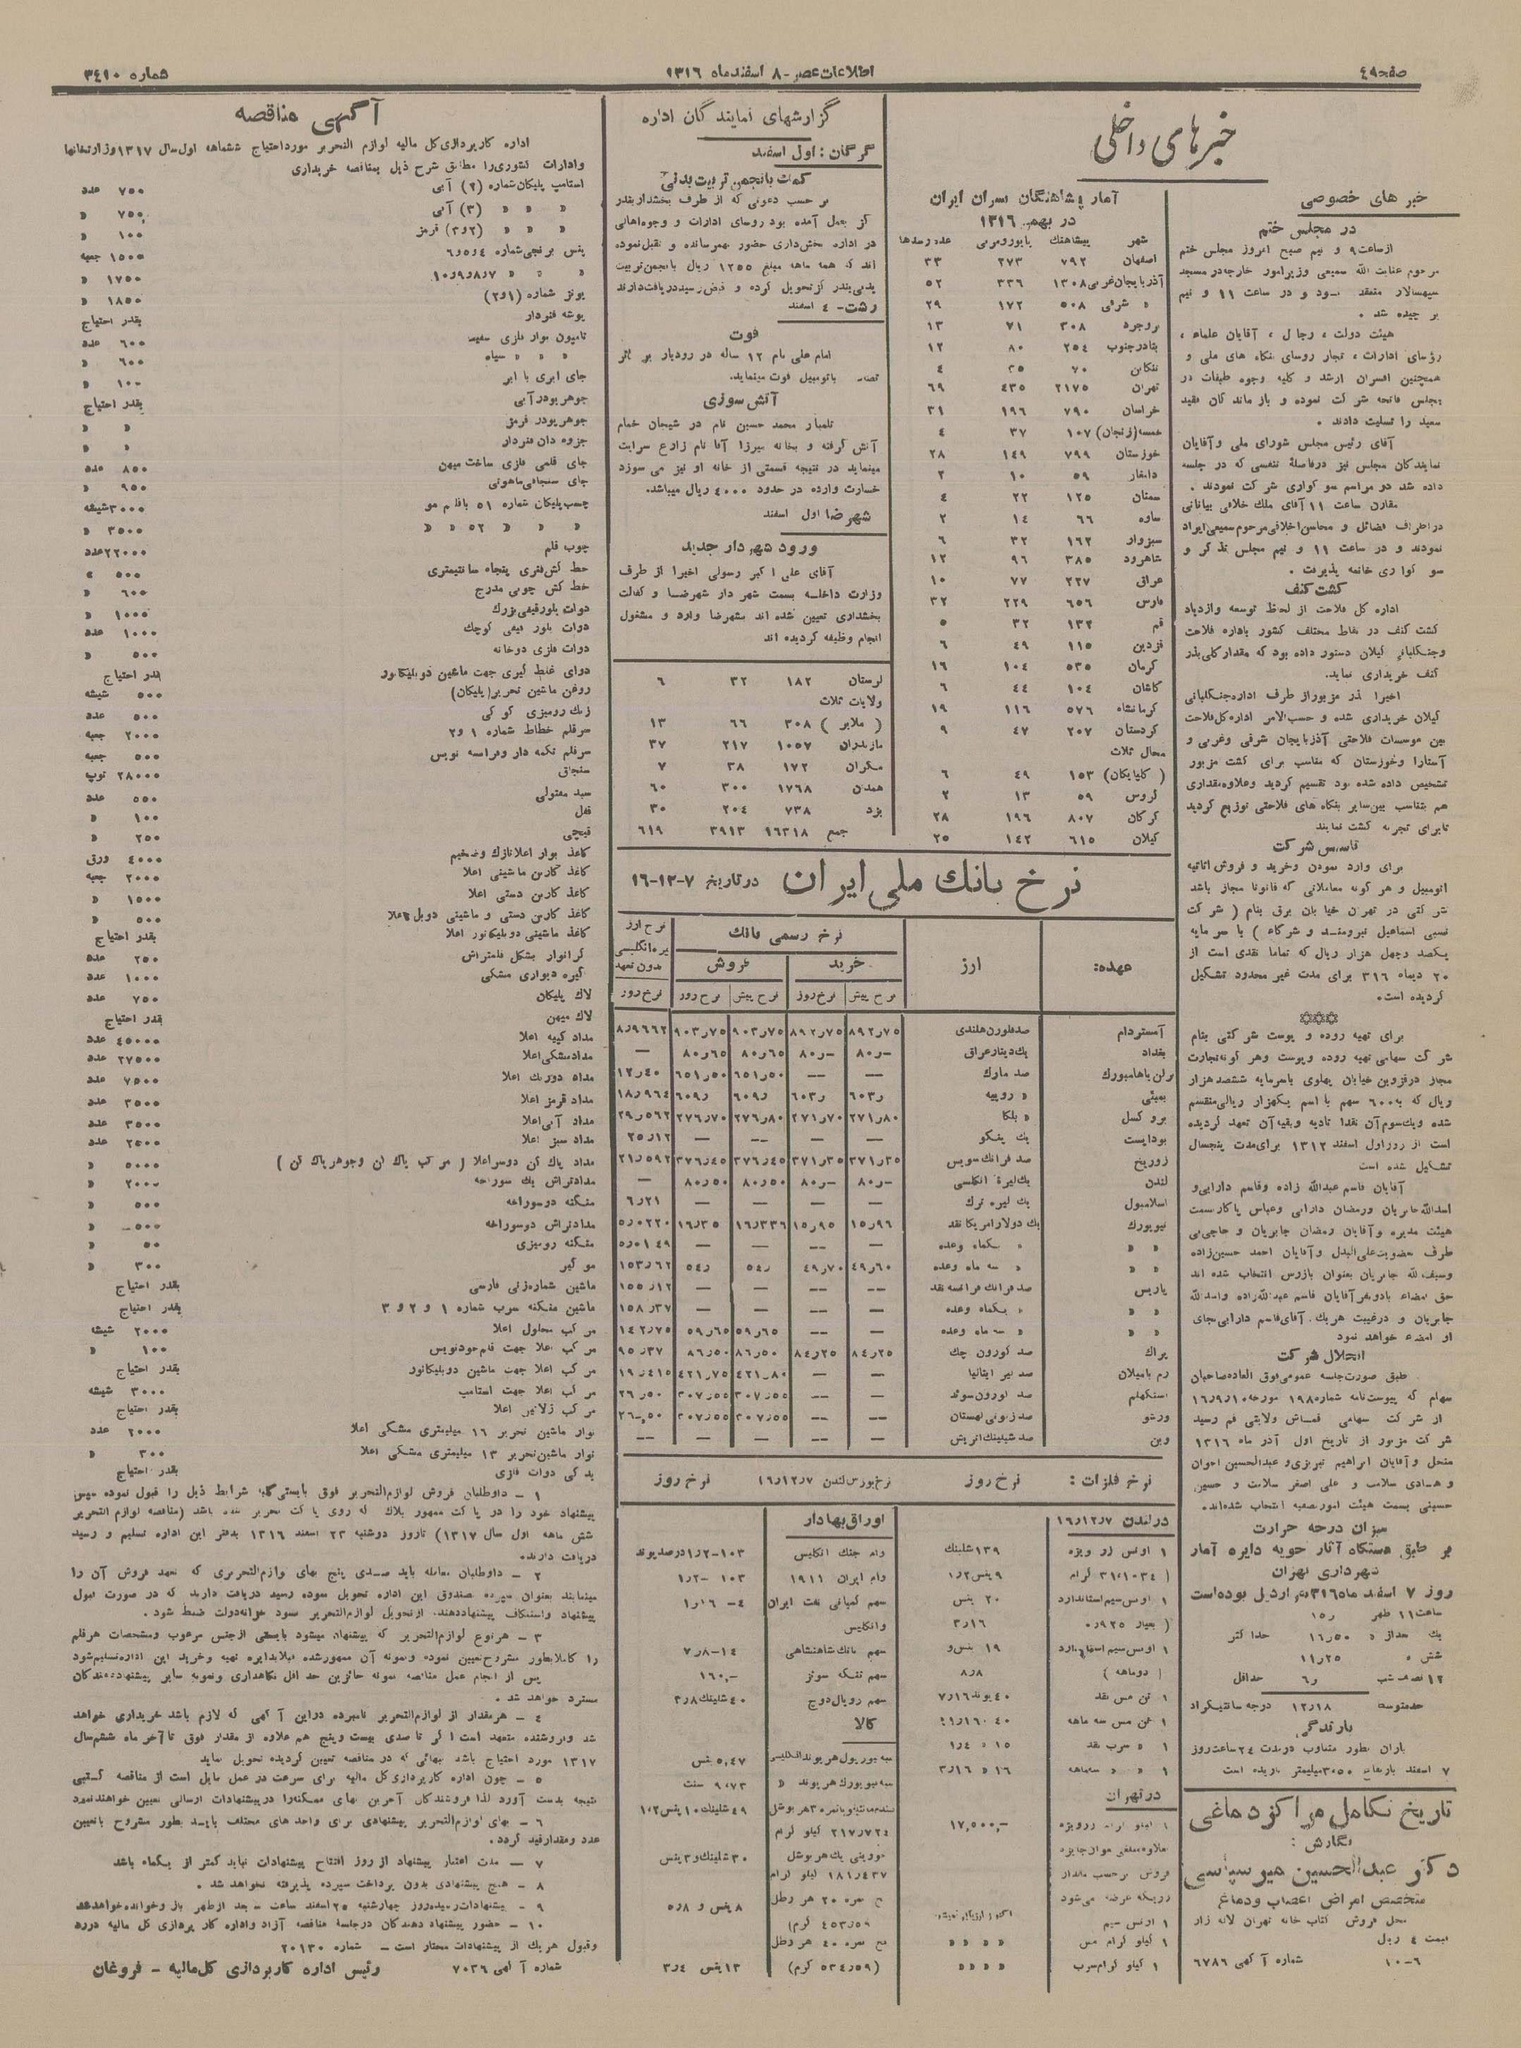 صفحه ٤٩
اطلاعات عصر - ٨ اسفند ماه ١٣١٦
شماره ٣٤١٠
خبرهای داخلی
خبر های خصوصی
در مجلس ختم
از ساعت ٩ و نیم صبح امروز مجلس ختم
مرحوم عنایت الله سمیعی وزیر امور خارجه در مسجد
سپهسالار منعقد بود و در ساعت ١١ و نیم
بر چیده شد .
هیئت دولت ، رجال ، آقایان علماء ،
رؤسای ادارات ، تجار روسای بنگاه های ملی و
همچنین افسران ارشد و کلیه وجوه طبقات در
مجلس فاتحه شرکت نموده و بازماندگان فقید
سعید را تسلیت دادند .
آقای رئیس مجلس شورای ملی و آقایان
نمایندگان مجلس نیز در فاصلهٔ تنفسی که در جلسه
داده شد در مراسم سوگواری شرکت نمودند .
مقارن ساعت ١١ آقای ملک خلاقی بیاناتی
در اطراف فضائل و محاسن اخلاقی مرحوم سمیعی ایراد
نمودند و در ساعت ١١ و نیم مجلس تذکر و
سوگواری خاتمه پذیرفت .
کشت کنف
اداره کل فلاحت از لحاظ توسعه و ازدیاد
کشت کنف در نقاط مختلف کشور باداره فلاحت
و جنگلبانی گیلان دستور داده بود که مقدار کلی بذر
کنف خریداری نماید.
اخیرا بذر مزبور از طرف اداره جنگلبانی
گیلان خریداری شده و حسب الامر اداره کل فلاحت
بین موسسات فلاحتی آذربایجان شرقی و غربی و
آستارا و خوزستان که مناسب برای کشت مزبور
تشخیص داده شده بود تقسیم گردید و علاوه مقداری
هم بتناسب بین سایر بنگاه های فلاحتی توزیع گردید
تا برای تجربه کشت نمایند
تاسیس شرکت
برای وارد نمودن و خرید و فروش اثاثیه
اتومبیل و هر گونه معاملاتی که قانونا مجاز باشد
شرکتی در تهران خیابان برق بنام ( شرکت
نسبی اسماعیل نیرومند و شرکاء ) با سرمایه
یکصد و چهل هزار ریال که تماما نقدی است از
٢٠ دیماه ٣١٦ برای مدت غیر محدود تشکیل
گردیده است.
برای تهیه روده و پوست شرکتی بنام
شرکت سهامی تهیه روده و پوست و هر گونه تجارت
مجاز در قزوین خیابان پهلوی با سرمایه ششصد هزار
ریال که به ٦٠٠ سهم با اسم یکهزار ریالی منقسم
شده و یک سوم آن نقدا تادیه و بقیه آن تعهد گردیده
است از روز اول اسفند ١٣١٢ برای مدت پنجسال
تشکیل شده است
آقایان قاسم عبدالله زاده و قاسم دارابی و
هیئت مدیره و آقایان رمضان جابریان و حاجی بی
حق امضاء با دو نفر آقایان قاسم عبدالله زاده و اسدالله
جابریان و در غیبت هر یک آقای قاسم دارابی بجای
او امضاء خواهد نمود
انحلال شرکت
طبق صورت جلسه عمومی فوق العاده صاحبان
سهام که پیوست نامه شماره ١٩٨٠ مورخه ١٦٫٩٫١٠
از شرکت سهامی قماش ولایتی قم رسید
شرکت مزبور از تاریخ اول آذر ماه ١٣١٦
منحل و آقایان ابراهیم تبریزی و عبدالحسین اخوان
و هادی سلامت و علی اصغر سلامت و حسین
حسینی بسمت هیئت امور تصفیه انتخاب شده اند.
میزان درجه حرارت
بر طبق دستگاه آثار جویه دایره آمار
شهرداری تهران
روز ٧ اسفند ماه ٣١٦ بقرار ذیل بوده است
ساعت ١١ ظهر ١٥٫
حد اکثر ١٦٫٥٠
شش ١١٫٢٥
١٢ نصف شب ٦٫ حداقل
حد متوسط ١٢٫١٨ درجه سانتیگراد
بارندگی
باران بطور متناوب در مدت ٢٤ ساعت روز
٧ اسفند بارهای ٣٫٥٠ میلیمتر باریده است
تاریخ تکامل مراکز دماغی
نگارش :
دکتر عبدالحسین میر سپاسی
متخصص امراض اعصاب و دماغ
محل فروش کتاب خانه تهران لاله زار
قیمت ٤ ریال
شماره آگهی ٦٧٨٦ ٦-١٠
آمار پیشاهنگان پسران ایران
در بهمن ١٣١٦
شهر پیشاهنگ عده رسدها
اصفهان ٧٩٢ ٢٧٣ ٣٣
آذربایجان غربی ١٣٠٨ ٣٣٦ ٥٢
« شرقی ٥٠٨ ١٧٢ ٢٩
بروجرد ٣٠٨ ٧١ ١٣
بنادر جنوب ٢٥٤ ٨٠ ١٢
تنکابن ٧٠ ٣٥ ٤
تهران ٢١٧٥ ٤٣٥ ٦٩
خراسان ٧٩٠ ١٩٦ ٣١
خمسه (زنجان) ١٠٧ ٣٧ ٤
خوزستان ٧٩٩ ١٤٩ ٢٨
دامغان ٥٩ ١٠ ٢
سمنان ١٢٥ ٢٢ ٤
ساوه ٦٦ ١٤ ٢
سبزوار ١٦٢ ٣٢ ٦
شاهرود ٣٨٥ ٩٦ ١٢
عراق ٢٢٧ ٧٧ ١٠
فارس ٦٥٦ ٢٢٩ ٣٢
قم ١٣٢ ٣٢ ٥
قزوین ١١٥ ٤٩ ٦
کرمان ٥٣٥ ١٠٤ ١٦
کاشان ١٠٤ ٤٤ ٦
کرمانشاه ٥٧٦ ١١٦ ١٩
کردستان ٢٠٧ ٤٧ ٩
محال ثلاث
( گلپایگان) ١٥٣ ٤٩ ٦
گروس ٥٩ ١٣ ٢
گرگان ٨٠٧ ١٩٦ ٢٨
گیلان ٦١٥ ١٤٢ ٢٥
لرستان ١٨٢ ٣٢ ٦
ولایات ثلاث
( ملایر ) ٣٠٨ ٦٦ ١٣
مازندران ١٠٥٧ ٢١٧ ٣٧
مکران ١٧٢ ٣٨ ٧
همدان ١٧٦٨ ٣٠٠ ٦٠
یزد ٧٣٨ ٢٠٤ ٣٠
جمع ١٦٣١٨ ٣٩١٣ ٦١٩
گزارشهای نمایندگان اداره
گرگان : اول اسفند
کمک بانجمن تربیت بدنی
بر حسب دعوتی که از طرف بخشدار بندر
گز بعمل آمده بود روسای ادارات و وجوه اهالی
در اداره بخش داری حضور بهمرسانده و تقبل نموده
اند که همه ماهه مبلغ ١٢٥٥ ریال بانجمن تربیت
بدنی بندر گز تحویل کرده و قبض رسید دریافت دارند
رشت - ٤ اسفند
فوت
امام علی نام ١٢ ساله در رودبار بر اثر
تصادف با اتومبیل فوت مینماید.
آتش سوزی
تلمبار محمد حسین نام در شیجان خمام
آتش گرفته و بخانه میرزا آقا نام زارع سرایت
مینماید در نتیجه قسمتی از خانه او نیز می سوزد
خسارت وارده در حدود ٤٠٠٠ ریال میباشد.
شهرضا اول اسفند
ورود شهردار جدید
آقای علی اکبر رسولی اخیرا از طرف
وزارت داخله بسمت شهر دار شهرضا و کفالت
بخشداری تعیین شده اند بشهرضا وارد و مشغول
انجام وظیفه گردیده اند
نرخ بانک ملی ایران در تاریخ ٧-١٢-١٦
عهده: ارز نرخ رسمی بانک
خرید فروش
نرخ پیش نرخ روز نرخ پیش نرخ روز نرخ روز
آمستردام صد فلورن هلندی ٨٩٢٫٧٥ ٨٩٢٫٧٥ ٩٠٣٫٧٥ ٩٠٣٫٧٥ ٨٫٩٦٦٢
بغداد یک دینار عراق ٨٠٫- ٨٠٫- ٨٠٫٦٥ ٨٠٫٦٥ —
برلن یا هامبورک صد مارک — — ٦٥١٫٥٠ ٦٥١٫٥٠ ١٢٫٤٠
بمبئی « روپیه ٦٠٣٫ ٦٠٣٫ ٦٠٩٫ ٦٠٩٫ ١٨٫٩٦٤
بروکسل « بلگا ٢٧١٫٨٠ ٢٧١٫٧٠ ٢٧٦٫٨٠ ٢٧٦٫٧٠ ٢٩٫٥٦٢
بوداپست یک پنگو — — — — ٢٥٫١٢
زوریخ صد فرانک سویس ٣٧١٫٣٥ ٣٧١٫٣٥ ٣٧٦٫٤٥ ٣٧٦٫٤٥ ٢١٫٥٩٢
لندن یک لیرهٔ انگلیسی ٨٠٫- ٨٠٫- ٨٠٫٥٠ ٨٠٫٥٠ —
اسلامبول یک لیره ترک — — — — ٦٫٢١
نیویورک یک دولار امریکا نقد ١٥٫٩٦ ١٥٫٩٥ ١٦٫٣٣٦ ١٦٫٣٥ ٥٫٠٢٢٠
« « « یکماه وعده — — — — ٥٫٠١٤٩
« « « سه ماه وعده ٤٩٫٦٠ ٤٩٫٧٠ ٥٤٫ ٥٤٫ ١٥٣٫٦٢
پاریس صد فرانک فرانسه نقد — — — — ١٥٥٫١٢
« « « یکماه وعده — — — — ١٥٨٫٣٧
« « « سه ماه وعده — — ٥٩٫٦٥ ٥٩٫٦٥ ١٤٢٫٧٥
پراک صد کورون چک ٨٤٫٢٥ ٨٤٫٢٥ ٨٦٫٥٠ ٨٦٫٥٠ ٩٥٫٣٧
رم یا میلان صد لیر ایتالیا — — ٤٢١٫٨٠ ٤٢١٫٧٥ ١٩٫٤١٥
استکهلم صد کورون سوئد — — ٣٠٧٫٥٥ ٣٠٧٫٥٥ ٢٦٫٥٠
ورشو صد زلوتی لهستان — — ٣٠٧٫٥٥ ٣٠٧٫٥٥ ٢٦٫٥٠
وین صد شیلینک اتریش — — — — —
نرخ فلزات : نرخ روز نرخ بورس لندن ١٦٫١٢٫٧ نرخ روز
در لندن ١٦٫١٢٫٧
١ اونس زر ویژه ١٣٩ شلینک
( ٣١٫١٠٣٤ گرام ) ٩ پنس ١٫٢
١ اونس سیم استاندارد ٢٠ پنس
( بعیار ٠٫٩٢٥ ) ٣٫١٦
١ اونس سیم استاندارد ١٩ پنس و
( دوماهه ) ٨٫٨
١ تن مس نقد ٤٠ پوند ٧٫١٦
١ تن مس سه ماهه
١ « سرب نقد ١٥ « ١٫٤
١ « « سه ماهه ١٦ « ٣٫١٦
در تهران
١ کیلو گرام زر ویژه ١٧٫٥٠٠٫-
١ اونس سیم
١ کیلو گرام مس « « « «
١ کیلو گرام سرب « « « «
اوراق بهادار
وام جنک انگلیس ١٠٣-١٫٢ درصد پوند
وام ایران ١٩١١ ١٠٣-١٫٢
سهم کمپانی نفت ایران ٤-١٫١٦
و انگلیس
سهم بانک شاهنشاهی ١٤-٧٫٨
سهم تنگه سوئز ١٦٠٫-
سهم رویال دوچ ٤٠ شلینک ٣٫٨
کالا
پنبه لیورپول هر پوند انگلیسی ٥٫٤٧ پنس
پنبه نیویورک هر پوند « ٩٫٧٣ سنت
گندم مانیتوبا نمره ٣ هر بوشل ٤٩ شلینک ١٠ پنس ١٫٢
٢١٧٫٧٢٤ کیلو گرام
یک هر بوشل ٣٠ شلینک و ٣ پنس
١٨١٫٤٣٧ کیلو گرام
نخ نمره ٢٠ هر رطل ٨ پنس و ٥٫٨
(٤٥٣٫٥٩ گرم)
نخ نمره ٤٠ هر رطل
(٥٣٤٫٥٩ گرم) ١٣ پنس ٣٫٤
آگهی مناقصه
اداره کارپردازی کل مالیه لوازم التحریر مورد احتیاج ششماهه اول سال ١٣١٧ وزارتخانها
و ادارات کشوری را مطابق شرح ذیل بمناقصه خریداری
استامپ پلیکان شماره (٢) آبی ٧٥٠ عدد
« « « (٣) آبی ٧٥٠ «
« « « (٢و٣) قرمز ١٠٠ «
پنس برنجی شماره ٤و٥و٦ ١٥٠٠ جعبه
« « « ٧و٨و٩و١٠ ١٧٥٠ «
پونز شماره (١و٢) ١٨٥٠ «
پوشه فنردار بقدر احتیاج
تامپون نوار فلزی سفید ٦٠٠ عدد
« « « سیاه ٦٠٠ «
جای ابری با ابر ١٠٠ «
جوهر پودر آبی بقدر احتیاج
جوهر پودر قرمز « «
جزوه دان فنردار « «
جای قلمی فلزی ساخت میهن ٨٥٠ عدد
جای سنجاقی ماهوتی ٩٥٠ «
چسب پلیکان شماره ٥١ با قلم مو ٣٠٠٠ شیشه
« « « ٥٢ « « ٣٥٠٠ «
چوب قلم ٢٢٠٠٠ عدد
خط کش فنری پنجاه سانتیمتری ٥٠٠ «
خط کش چوبی مدرج ٦٠٠ «
دوات بلور قیفی بزرگ ١٠٠٠ «
دوات بلور قیفی کوچک ١٠٠٠ عدد
دوات فلزی دوخانه ٥٠٠ «
دوای غلط گیری جهت ماشین دوپلیکاتور بقدر احتیاج
روغن ماشین تحریر (پلیکان) ٥٠٠ شیشه
زنک رومیزی کوکی ٥٠٠ عدد
سر قلم خطاط شماره ١ و ٢ ٢٠٠٠ جعبه
سر قلم تکمه دار و فرانسه نویس ٥٠٠ جعبه
سنجاق ٢٨٠٠٠ توپ
سبد مفتولی ٥٥٠ عدد
قفل ١٠٠ «
قیچی ٢٥٠ «
کاغذ بوار اعلا نازک و ضخیم ٤٠٠٠ ورق
کاغذ کاربن ماشینی اعلا ٢٠٠٠ جعبه
کاغذ کاربن دستی اعلا ١٥٠٠ «
کاغذ کاربن دستی و ماشینی دوبل اعلا ٥٠٠ «
کاغذ ماشینی دوپلیکاتور اعلا بقدر احتیاج
گرانوار بشکل قلمتراش ٢٥٠ عدد
گیره دیواری مشکی ١٠٠٠ «
لاک پلیکان ٧٥٠ عدد
لاک میهن بقدر احتیاج
مداد کپیه اعلا ٤٥٠٠٠ عدد
مداد مشکی اعلا ٢٧٥٠٠ عدد
مداد دورنک اعلا ٧٥٠٠ عدد
مداد قرمز اعلا ٣٥٠٠ عدد
مداد آبی اعلا ٣٥٠٠ عدد
مداد سبز اعلا ٢٥٠٠ عدد
مداد پاک کن دوسر اعلا ( مرکب پاک کن و جوهر پاک کن ) ٥٠٠٠ «
مدادتراش یک سوراخه ٢٠٠٠ «
منگنه دوسوراخه ٥٠٠ «
مدادتراش دوسوراخه ٥٠٠ «
منگنه رومیزی ٥٠ «
مو گیر ٣٠٠ «
ماشین شماره زنی فارسی بقدر احتیاج
ماشین منگنه سرب شماره ١ و ٢ و ٣ بقدر احتیاج
مرکب محلول اعلا ٢٠٠٠ شیشه
مرکب اعلا جهت قلم خودنویس ١٠٠ «
مرکب اعلا جهت ماشین دوپلیکاتور بقدر احتیاج
مرکب اعلا جهت استامپ ٣٠٠٠ شیشه
مرکب ژلاتین اعلا بقدر احتیاج
نوار ماشین تحریر ١٦ میلیمتری مشکی اعلا ٢٠٠٠ عدد
نوار ماشین تحریر ١٣ میلیمتری مشکی اعلا ٣٠٠ «
یدکی دوات فلزی بقدر احتیاج
١ - داوطلبان فروش لوازم التحریر فوق بایستی کلیه شرایط ذیل را قبول نموده سپس
پیشنهاد خود را در پاکت ممهور بلاک که روی پاکت تحریر شده باشد (مناقصه لوازم التحریر
شش ماهه اول سال ١٣١٧) تا روز دوشنبه ٢٣ اسفند ١٣١٦ بدفتر این اداره تسلیم و رسید
دریافت دارند.
٢ - داوطلبان معامله باید صدی پنج بهای لوازم التحریری که تعهد فروش آن را
مینمایند بعنوان سپرده بصندوق این اداره تحویل نموده رسید دریافت دارند که در صورت قبول
پیشنهاد و استنکاف پیشنهاد دهنده از تحویل لوازم التحریر بسود خزانه دولت ضبط شود .
٣ - هر نوع لوازم التحریر که پیشنهاد میشود بایستی از جنس مرغوب و مشخصات هر قلم
را کاملا بطور مشروح تعیین نموده و نمونه آن ممهور شده قبلا بدایره تهیه و خرید این اداره تسلیم شود
پس از انجام عمل مناقصه نمونه حائزین حد اقل نگاهداری و نمونه سایر پیشنهاد دهندگان
مسترد خواهد شد .
٤ - هر مقدار از لوازم التحریر نامبرده در این آگهی که لازم باشد خریداری خواهد
شد و فروشنده متعهد است اگر تا صدی بیست و پنج هم علاوه از مقدار فوق تا آخر ماه ششم سال
١٣١٧ مورد احتیاج باشد ببهائی که در مناقصه تعیین گردیده تحویل نماید
٥ - چون اداره کارپردازی کل مالیه برای سرعت در عمل مایل است از مناقصه کتبی
نتیجه بدست آورد لذا فروشندگان آخرین بهای ممکنه را در پیشنهادات ارسالی تعیین خواهند نمود
٦ - بهای لوازم التحریر پیشنهادی برای واحد های مختلف باید بطور مشروح با تعیین
عدد و مقدار قید گردد.
٧ - مدت اعتبار پیشنهاد از روز افتتاح پیشنهادات نباید کمتر از یکماه باشد
٨ - هیچ پیشنهادی بدون پرداخت سپرده پذیرفته نخواهد شد .
٩ - پیشنهادات رسیده روز چهارشنبه ٢٥ اسفند ساعت سه بعد از ظهر باز و خوانده خواهد شد
١٠ - حضور پیشنهاد دهندگان در جلسه مناقصه آزاد و اداره کارپردازی کل مالیه در رد
و قبول هر یک از پیشنهادات مختار است - شماره ٢٠١٣٠
شماره آگهی ٧٠٣٦ رئیس اداره کارپردازی کل مالیه - فروغان